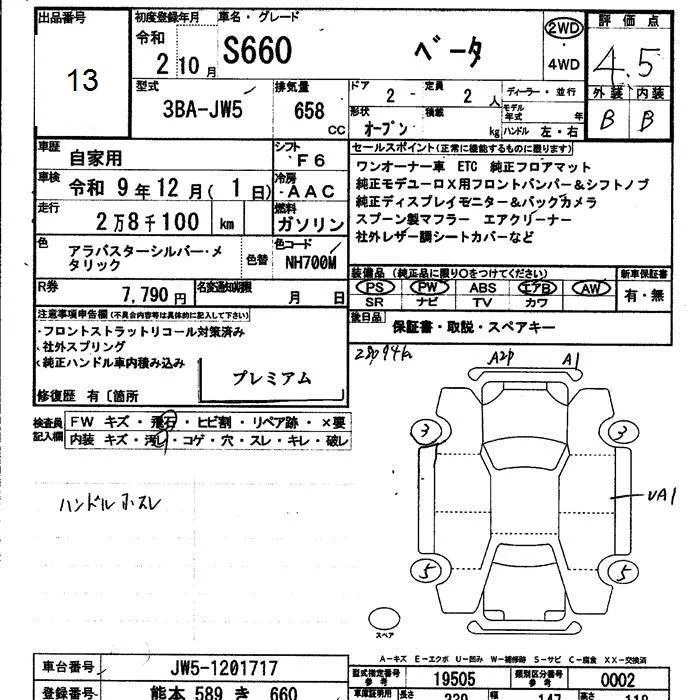 出品番号
13
初度登録年月
令和
2 10 月
車名・グレード
S660 ベータ
2WD
・
4WD
評価点
4.5
外装 内装
B B
型式
3BA-JW5
排気量
658
CC
ドア
2 -
定員
2 人
形状
オープン
積載
kg
ディーラー・並行
モデル年式 年
ハンドル 左・右
車歴
自家用
シフト
F6
車検
令和 9年12月( 1日)
冷房
AAC
走行
2万8千100 km
燃料
ガソリン
色
アラバスターシルバー・メ
タリック
色替
色コード
NH700M
R券
7,790円
名変通知期限
月 日
セールスポイント(正常に機能するものに限ります)
ワンオーナー車 ETC 純正フロアマット
純正モデューロX用フロントバンパー&シフトノブ
純正ディスプレイモニター&バックカメラ
スプーン製マフラー エアクリーナー
社外レザー調シートカバーなど
装備品(純正品に限り○をつけてください)
新車保証書
PS PW ABS エアB AW
SR ナビ TV カワ
有・無
後日品
保証書・取説・スペアキー
注意事項申告欄(不具合内容等は具体的に記入して下さい)
・フロントストラットリコール対策済み
社外スプリング
純正ハンドル車内積み込み
プレミアム
修復歴 有〔箇所
28094km
A2P A1
検査員
記入欄
FW キズ・飛石・ヒビ割・リペア跡・×要
内装 キズ・汚れ・コゲ・穴・スレ・キレ・破レ
3 3
ハンドル 小スレ
UA1
5 5
スペア
A-キズ E-エクボ U-凹み W-補修跡 S-サビ C-腐食 XX-交換済
車台番号
JW5-1201717
型式指定番号
参考
19505
類別区分番号
参考
0002
登録番号
熊本 589 き 660
車庫証明用
長さ
339
幅
147
高さ
118